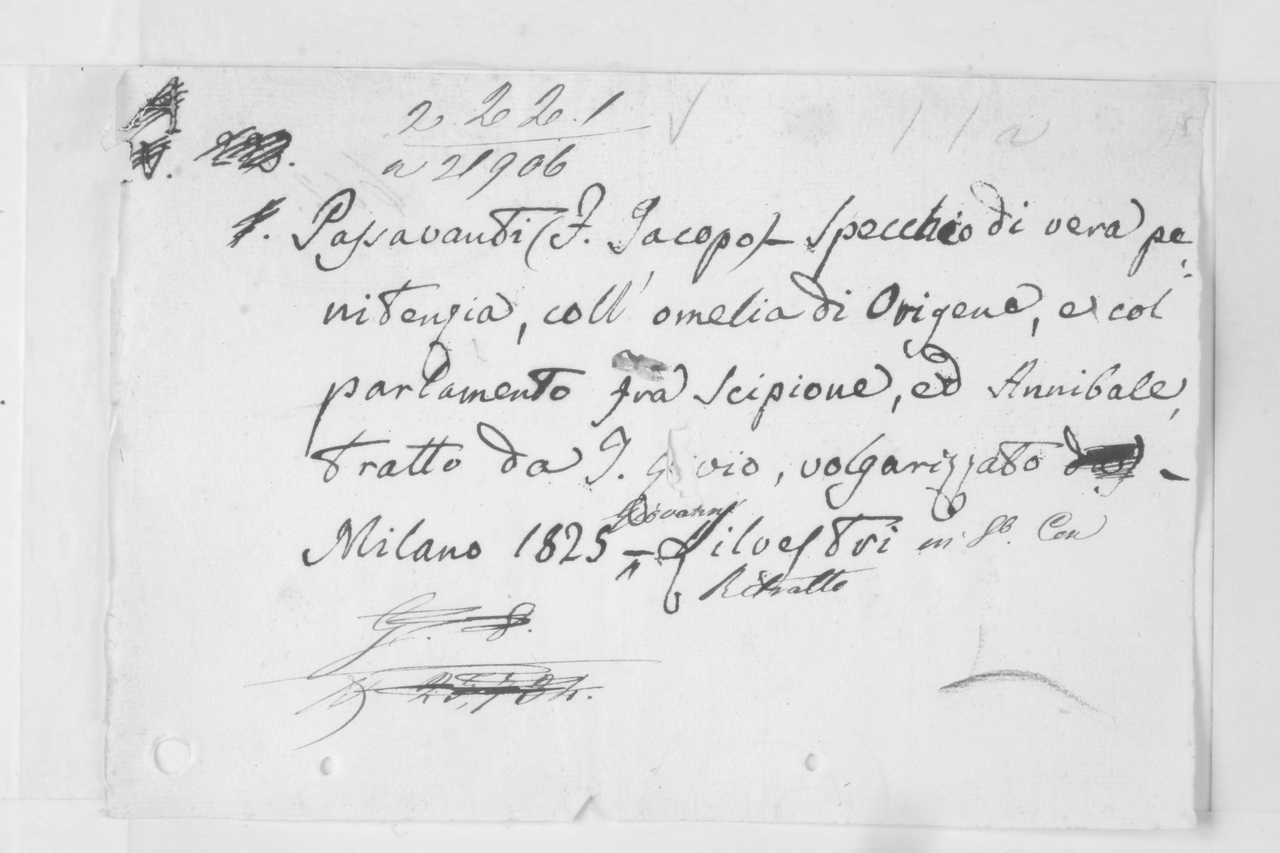 2.2.2.1
a 21906
Passavanti (F. Jacopo) - Specchio di vera pe-
nitenzia, coll' omelia di Origene, e col
parlamento fra Scipione, ed Annibale,
tratto da T. Livio, volgarizzato -
Milano 1825 - Giovanni Silvestri in
Ritratto